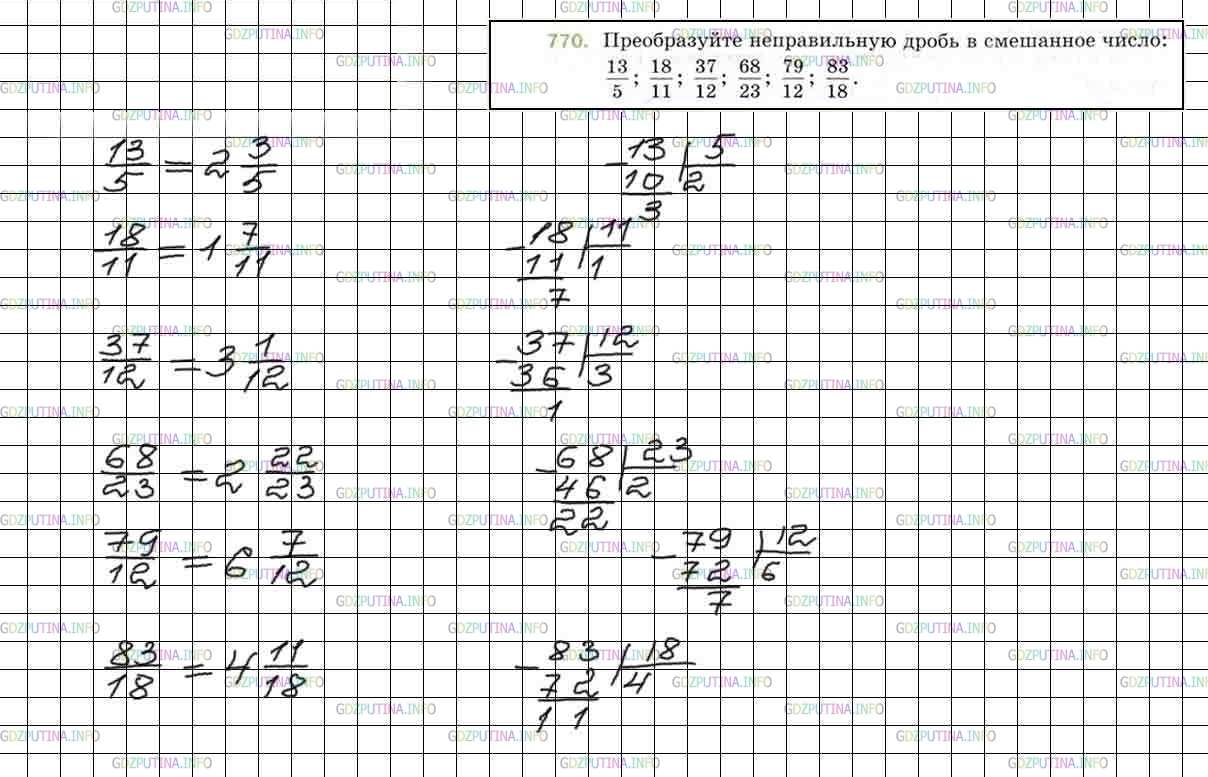 770. Преобразуйте неправильную дробь в смешанное число:
13/5; 18/11; 37/12; 68/23; 79/12; 83/18.
13/5 = 2 3/5
−13 | 5
10 | 2
3
18/11 = 1 7/11
−18 | 11
11 | 1
7
37/12 = 3 1/12
−37 | 12
36 | 3
1
68/23 = 2 22/23
−68 | 23
46 | 2
22
79/12 = 6 7/12
−79 | 12
72 | 6
7
83/18 = 4 11/18
−83 | 18
72 | 4
11
GDZPUTINA.INFO